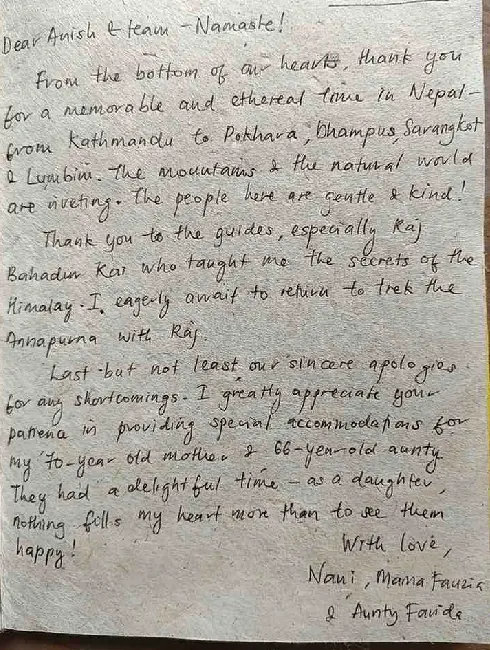 Dear Anish & team - Namaste!
From the bottom of our hearts, thank you
for a memorable and ethereal time in Nepal -
from Kathmandu to Pokhara, Dhampus, Sarangkot
& Lumbini. The mountains & the natural world
are riveting. The people here are gentle & kind!
Thank you to the guides, especially Raj
Bahadur Rai who taught me the secrets of the
Himalay. I eagerly await to return to trek the
Annapurna with Raj.
Last but not least our sincere apologies
for any shortcomings. I greatly appreciate your
patience in providing special accommodations for
my 70-year old mother & 66-year-old aunty.
They had a delightful time - as a daughter,
nothing fills my heart more than to see them
happy!
With love,
Nani, Mama Fauzia
& Aunty Farida